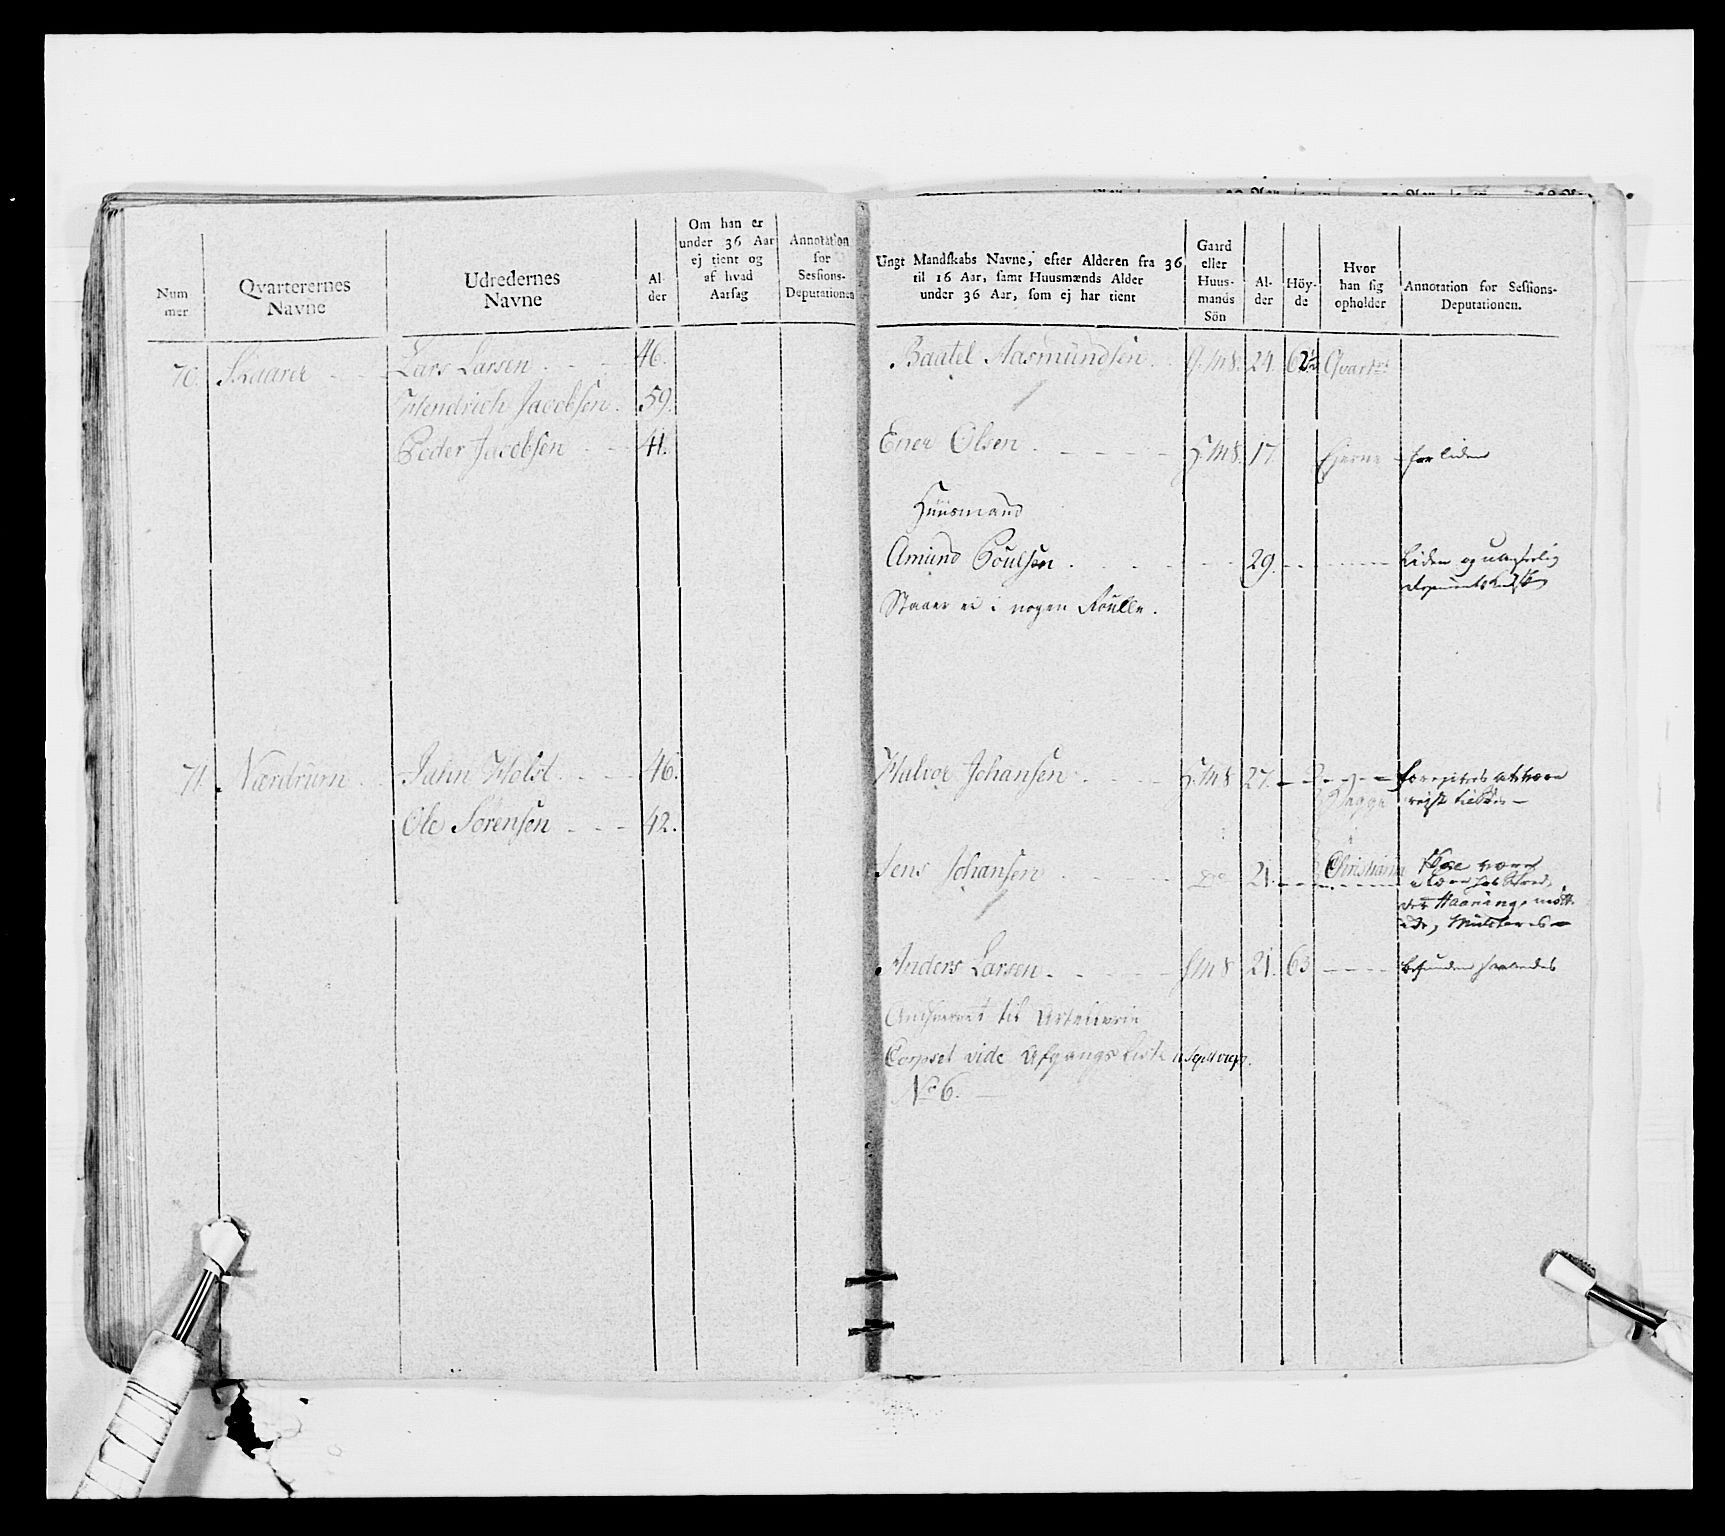 Num
mer
Qvarterernes
Navne
Udredernes
Navne
Al-
der
Om han er
under 36 Aar
ej tient og
af hvad
Aarsag
Annotation
for
Sessions-
Deputationen
70. Skaarer Lars Larsen 46.
Hendrich Jacobsen. 59.
Peder Jacobsen 41.
71. Nærdrum Jahn Holst 46.
Ole Sörensen 42.
Ungt Mandskabs Navne, efter Alderen fra 36
til 16 Aar, samt Huusmænds Alder
under 36 Aar, som ej har tient
Gaard
eller
Huus-
mands
Sön
Al-
der
Höy-
de
Hvor
han sig
opholder
Annotation for Sessions-
Deputationen.
Baatel Aasmundsen G.M.S. 24. 62½ Qvart
Ener Olsen H.M.S. 17. Hierne for liden
Huusmand
Amund Poulsen 29. Liden og
Staaer ei i nogen Roulle.
Halvor Johansen H.M.S. 27.
Jens Johansen Do 21. Christiania
Anders Larsen. 21. 63 befunden saaledes
til Artellerie
Corpset vide Afgangs Liste
No 6.